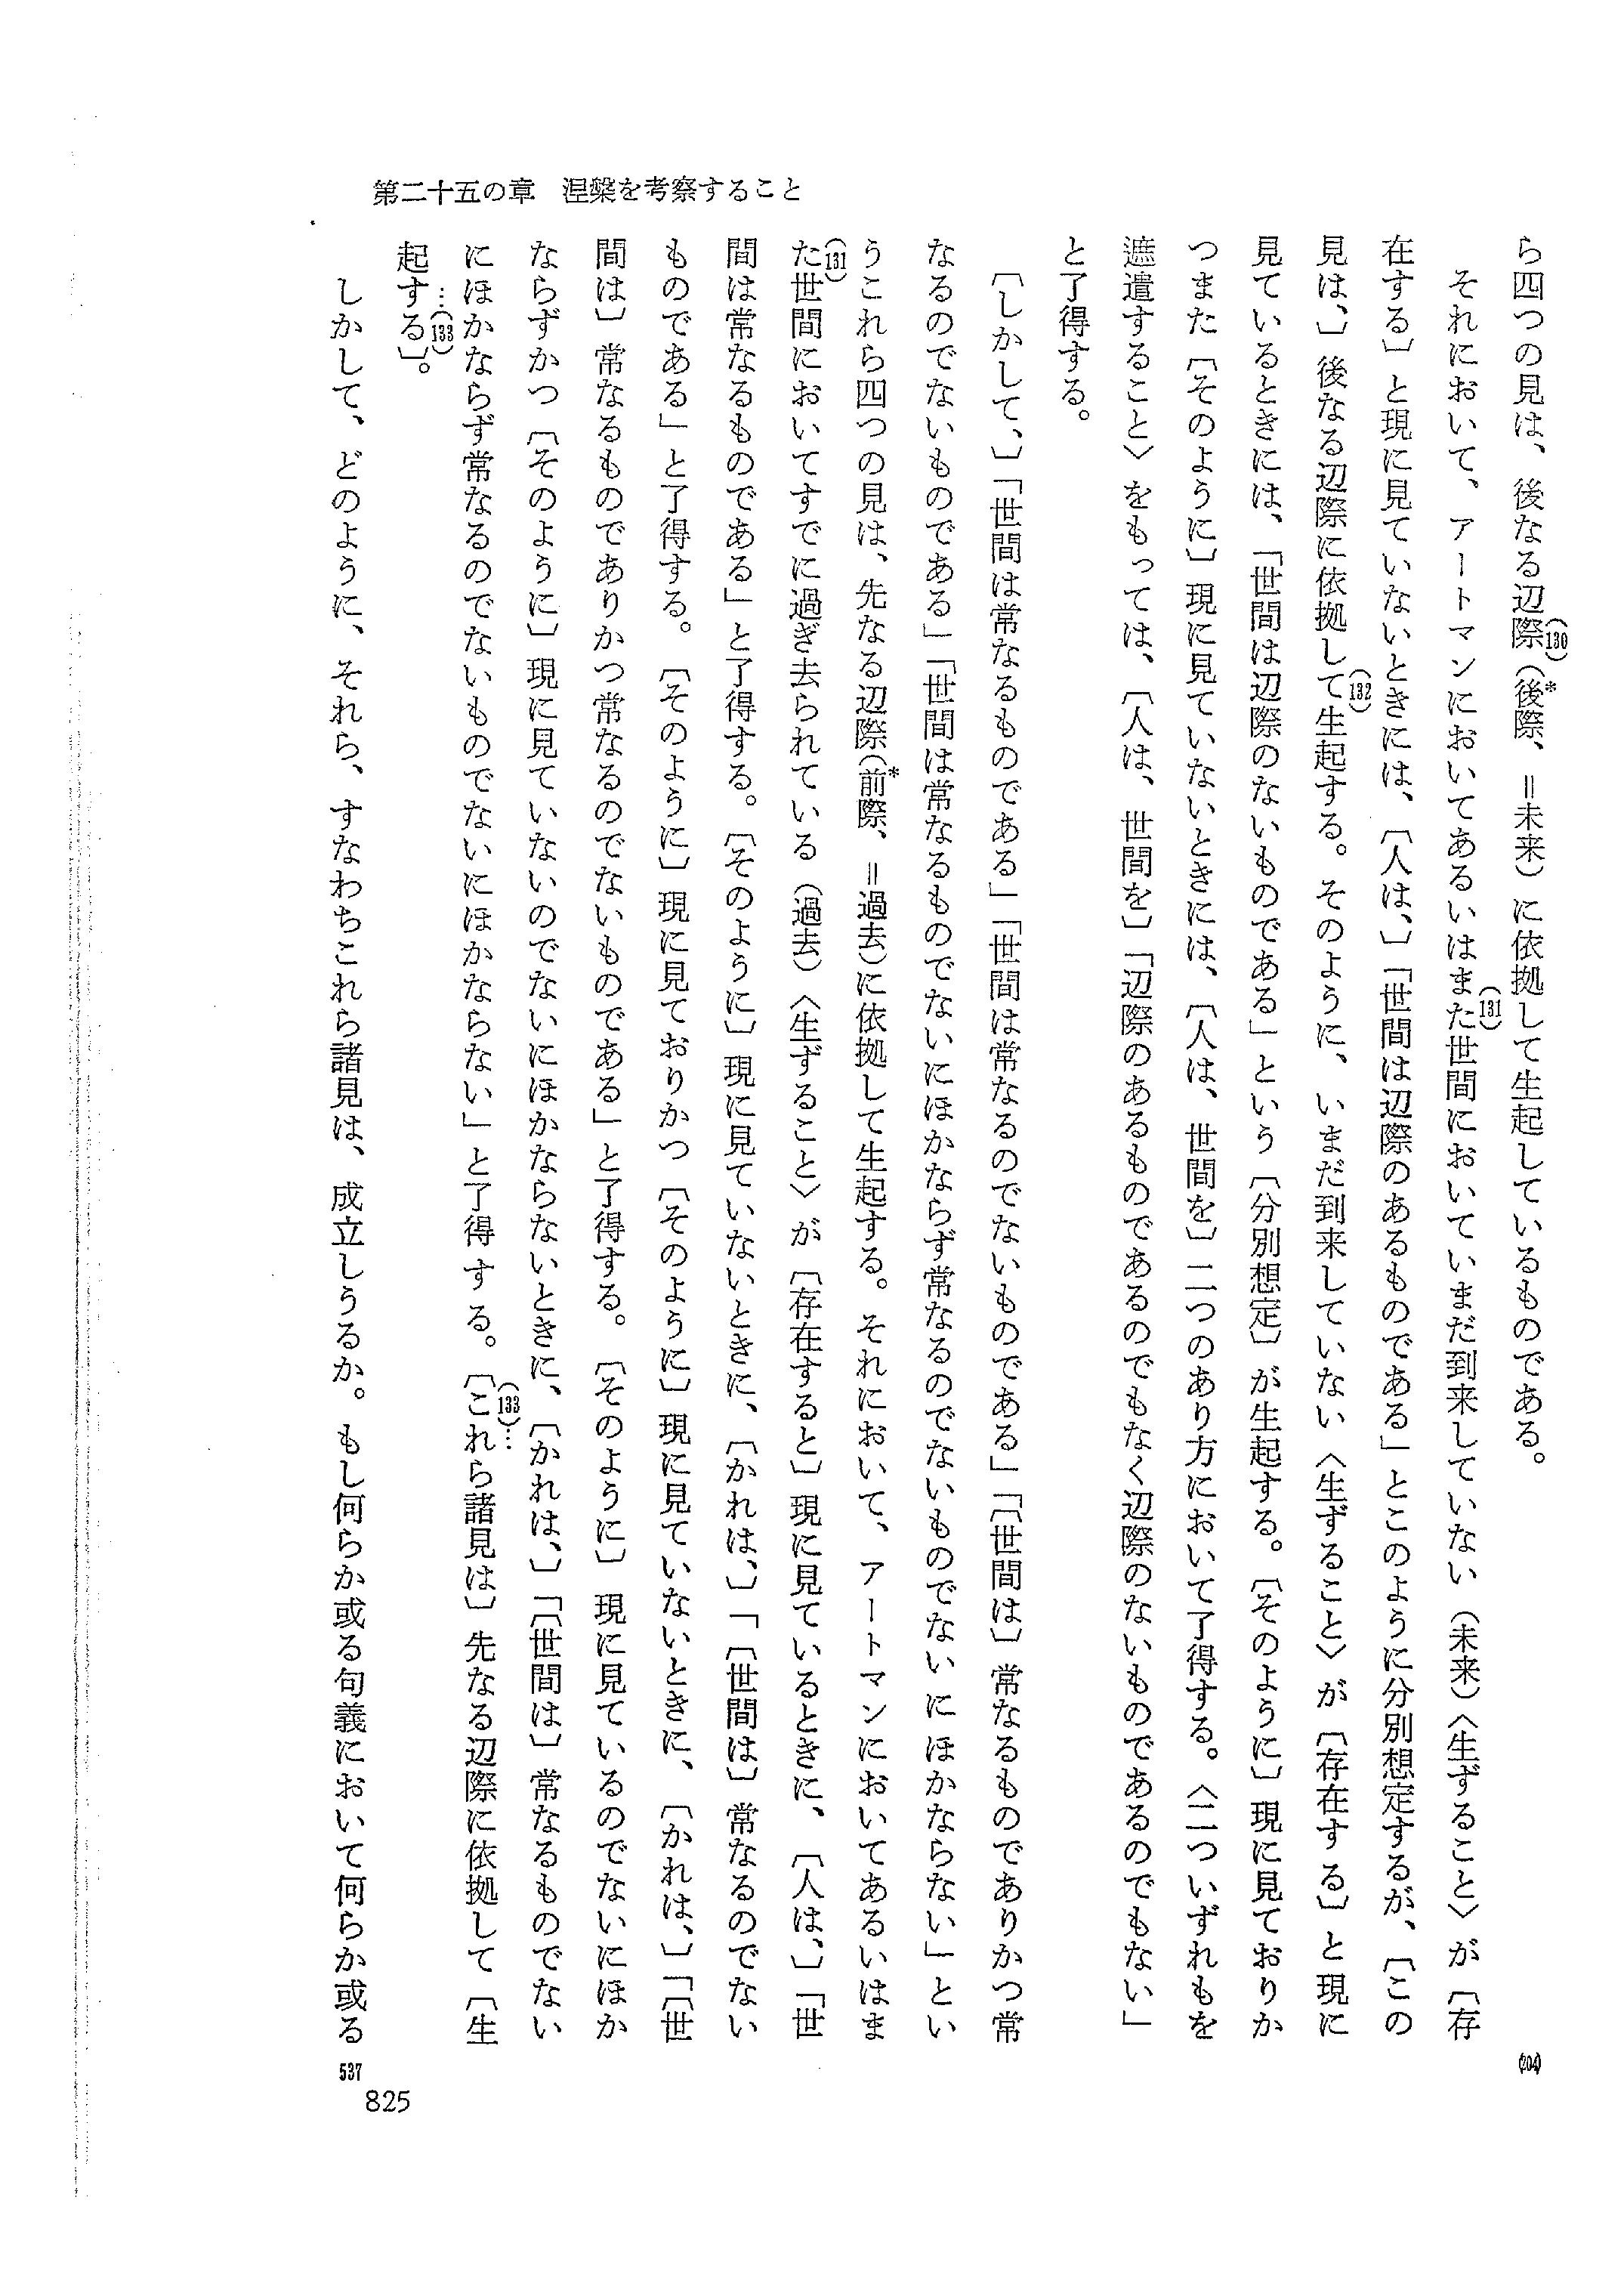 第二十五の章　涅槃を考察すること
ら四つの見は、後なる辺際(130)（後際*、＝未来）に依拠して生起しているものである。
それにおいて、アートマンにおいてあるいはまた(131)世間においていまだ到来していない（未来）〈生ずること〉が〔存
在する〕と現に見ていないときには、〔人は、〕「世間は辺際のあるものである」とこのように分別想定するが、〔この
見は、〕後なる辺際に依拠して(132)生起する。そのように、いまだ到来していない〈生ずること〉が〔存在する〕と現に
見ているときには、「世間は辺際のないものである」という〔分別想定〕が生起する。〔そのように〕現に見ておりか
つまた〔そのように〕現に見ていないときには、〔人は、世間を〕二つのあり方において了得する。〈二ついずれもを
遮遣すること〉をもっては、〔人は、世間を〕「辺際のあるものであるのでもなく辺際のないものであるのでもない」
と了得する。
〔しかして、〕「世間は常なるものである」「世間は常なるのでないものである」「〔世間は〕常なるものでありかつ常
なるのでないものである」「世間は常なるものでないにほかならず常なるのでないものでないにほかならない」とい
うこれら四つの見は、先なる辺際（前際*、＝過去）に依拠して生起する。それにおいて、アートマンにおいてあるいはま
た(131)世間においてすでに過ぎ去られている（過去）〈生ずること〉が〔存在すると〕現に見ているときに、〔人は、〕「世
間は常なるものである」と了得する。〔そのように〕現に見ていないときに、〔かれは、〕「〔世間は〕常なるのでない
ものである」と了得する。〔そのように〕現に見ておりかつ〔そのように〕現に見ていないときに、〔かれは、〕「〔世
間は〕常なるものでありかつ常なるのでないものである」と了得する。〔そのように〕現に見ているのでないにほか
ならずかつ〔そのように〕現に見ていないのでないにほかならないときに、〔かれは、〕「〔世間は〕常なるものでない
にほかならず常なるのでないものでないにほかならない」と了得する。〔(133)…これら諸見は〕先なる辺際に依拠して〔生
起する…(133)〕。
しかして、どのように、それら、すなわちこれら諸見は、成立しうるか。もし何らか或る句義において何らか或る
(204)
537
825